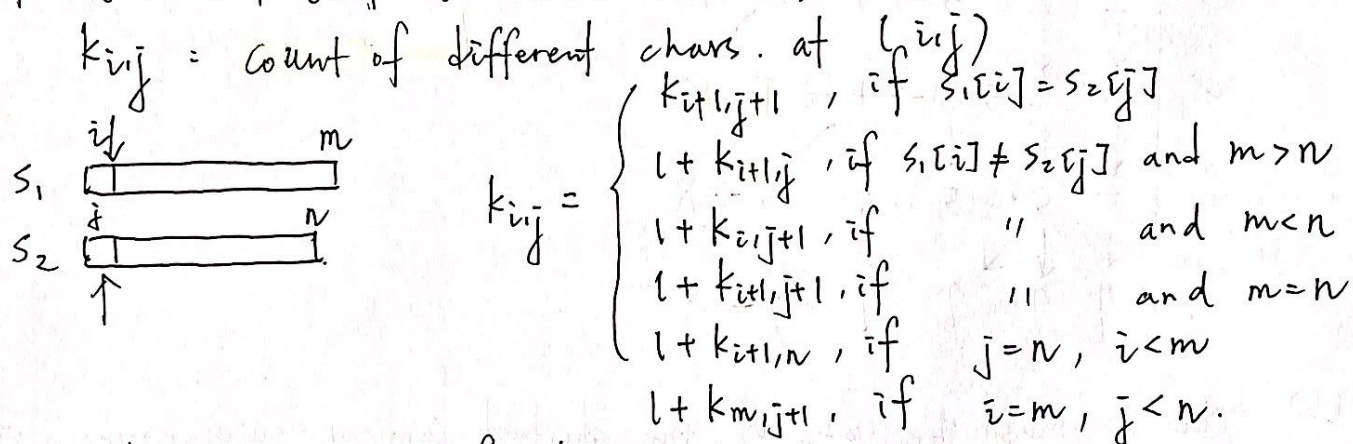 k_{i,j} : count of different chars. at (i,j)
i m
S_1
j n
S_2
k_{i,j} =
k_{i+1,j+1} , if S_1[i] = S_2[j]
1 + k_{i+1,j} , if S_1[i] ≠ S_2[j] and m > n
1 + k_{i,j+1} , if " and m < n
1 + k_{i+1,j+1} , if " and m = n
1 + k_{i+1,n} , if j = n, i < m
1 + k_{m,j+1} , if i = m, j < n.